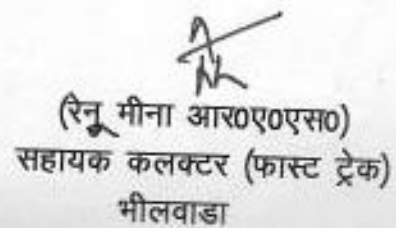 (रेनू मीना आर0ए0एस0)
सहायक कलक्टर (फास्ट ट्रेक)
भीलवाडा